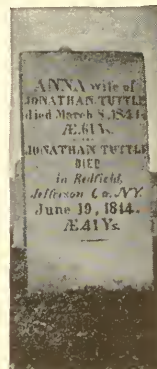 ANNA wife of
JONATHAN TUTTLE
died March 8, 1841.
Æ. 61 Ys.
JONATHAN TUTTLE
DIED
in Redfield,
Jefferson Co. NY.
June 19, 1814.
Æ 41 Ys.